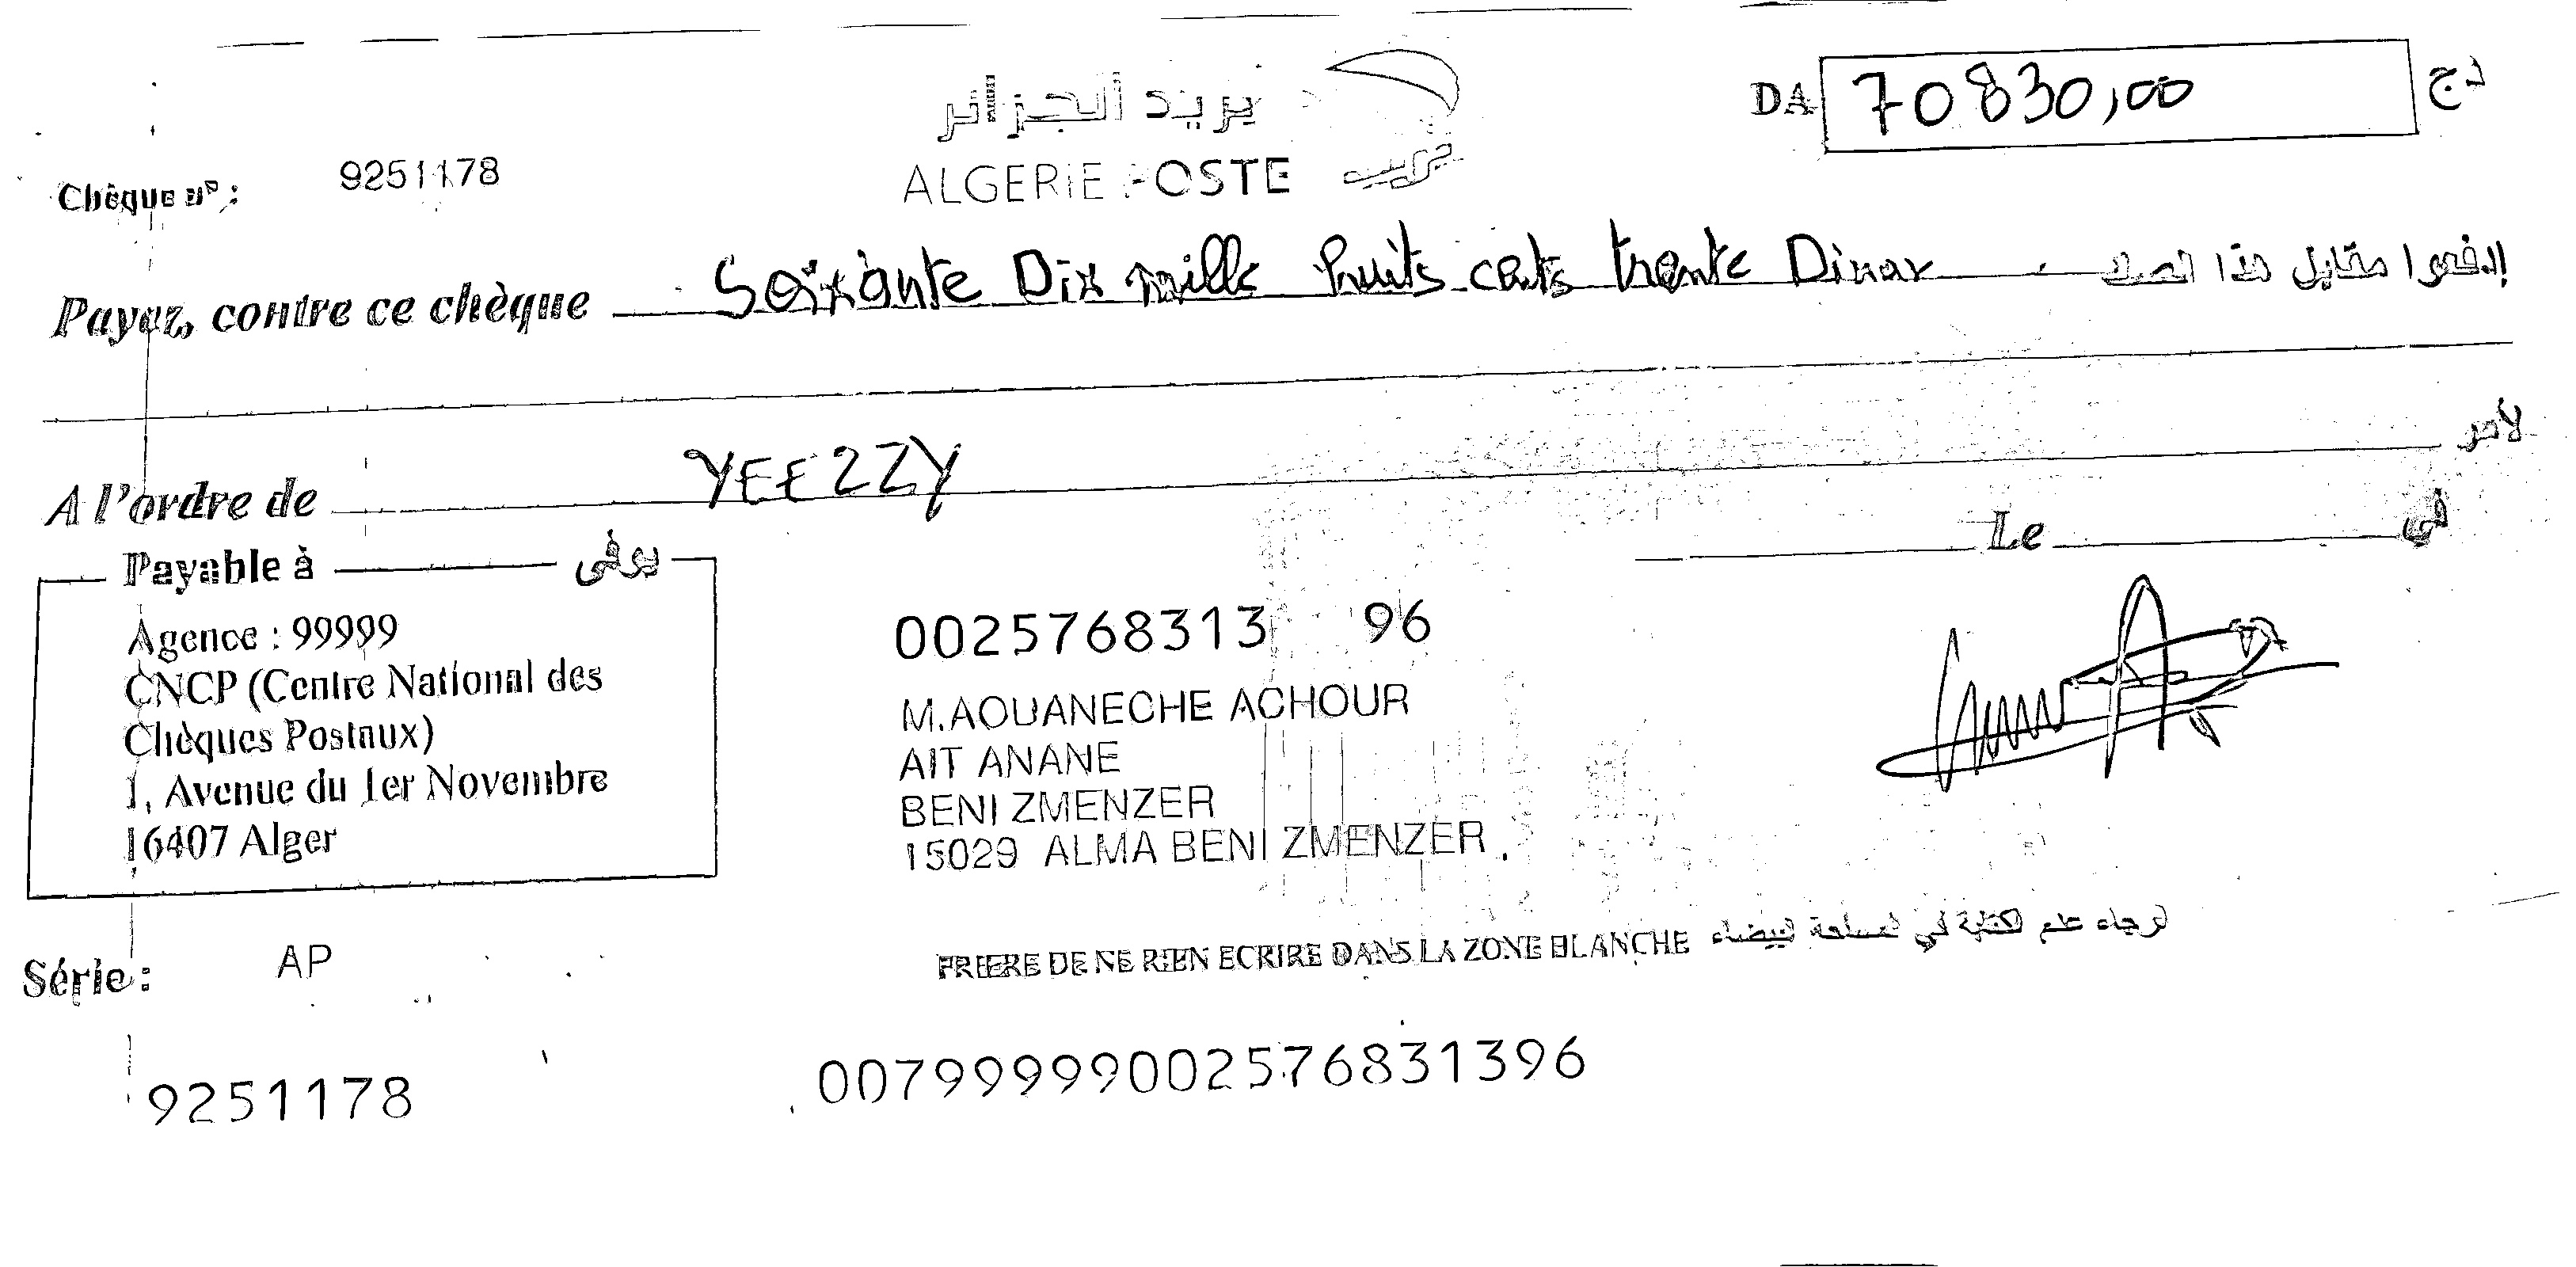 بريد الجزائر
ALGERIE POSTE
DA 70830,00 دج
Chèque nº : 9251178
Payez, contre ce chèque Soixante Dix mille huits cents trente Dinar إدفعوا مقابل هذا الصك
A l'ordre de YEEZZY لأمر
Le في
Payable à يوفى
Agence : 99999
CNCP (Centre National des
Chèques Postaux)
1, Avenue du 1er Novembre
16407 Alger
0025768313 96
M.AOUANECHE ACHOUR
AIT ANANE
BENI ZMENZER
15029 ALMA BENI ZMENZER
Série : AP
PRIERE DE NE RIEN ECRIRE DANS LA ZONE BLANCHE لرجاء عدم لكتابة في لمساحة لبيضاء
9251178
00799999002576831396